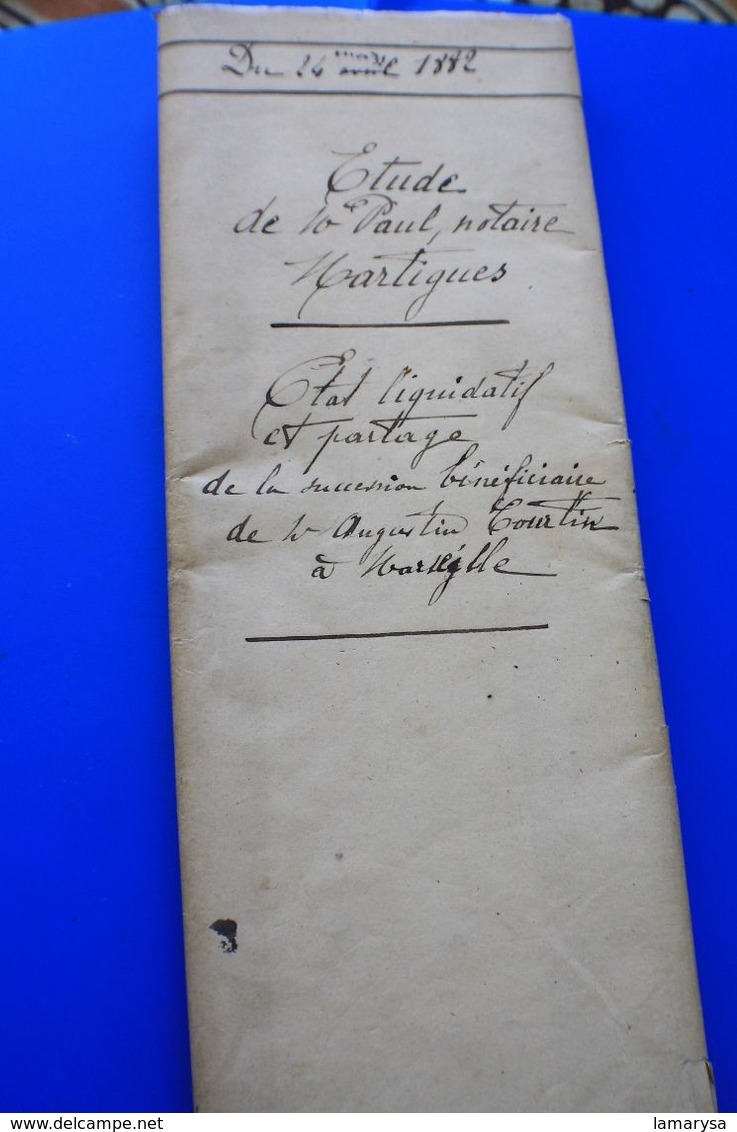 Du 24 mars avril 1882
Etude
de Me Paul, notaire
Martigues
Etat liquidatif
et partage
de la succession bénéficiaire
de M Augustin Tourtin
à Marseille
delcampe.net
lamarysa